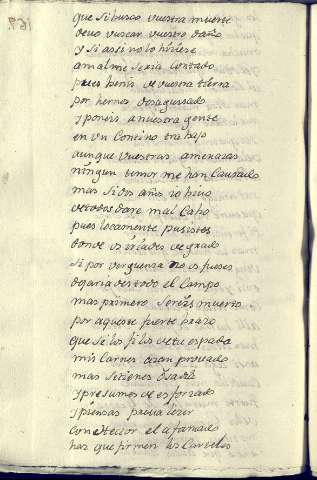 que si busco vuestra muerte
devo vuscar vuestro daño
y si asi no lo hiziese
a mal me seria contado
pues benis de vuestra tierra
por hernos desaguisado
y poneis a nuestra gente
en un contino trabajo
aunque vuestras amenazas
ningun temor me han causado
mas si dos años yo bivo
de todos daré mal cabo
pues locamente pusistes
donde os de grado
si por verguenza no os fuese
dejaria des todo el campo
mas primero sereis muerto
por aqueste fuerte brazo
que si los filos de tu espada
mis carnes ozan provado
mas si tienes osadia
y presumes de esforzado
y piensas prevalezer
con ector el afamado
haz que firmen los